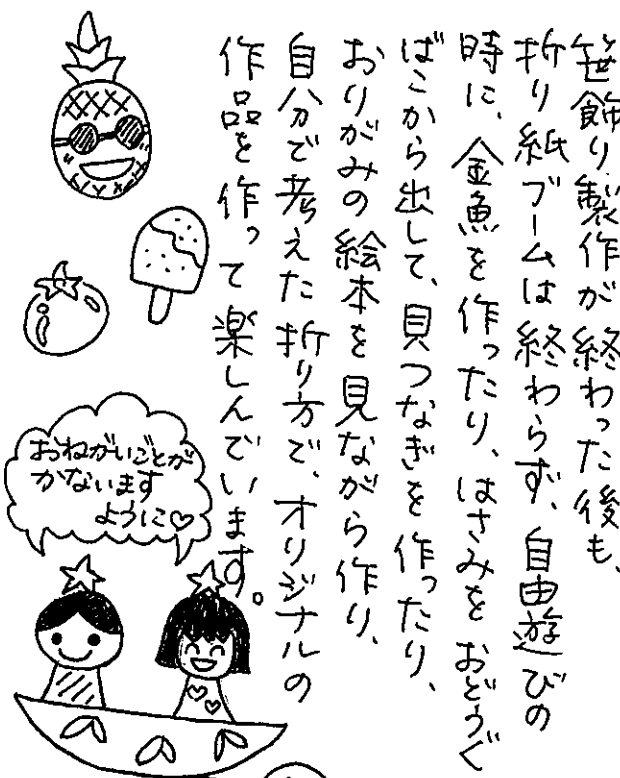 笹飾り製作が終わった後も、
折り紙ブームは終わらず、自由遊びの
時に、金魚を作ったり、はさみをおどうぐ
ばこから出して、貝つなぎを作ったり、
おりがみの絵本を見ながら作り、
自分で考えた折り方で、オリジナルの
作品を作って楽しんでいます。
おねがいごとが
かないます
ように♡